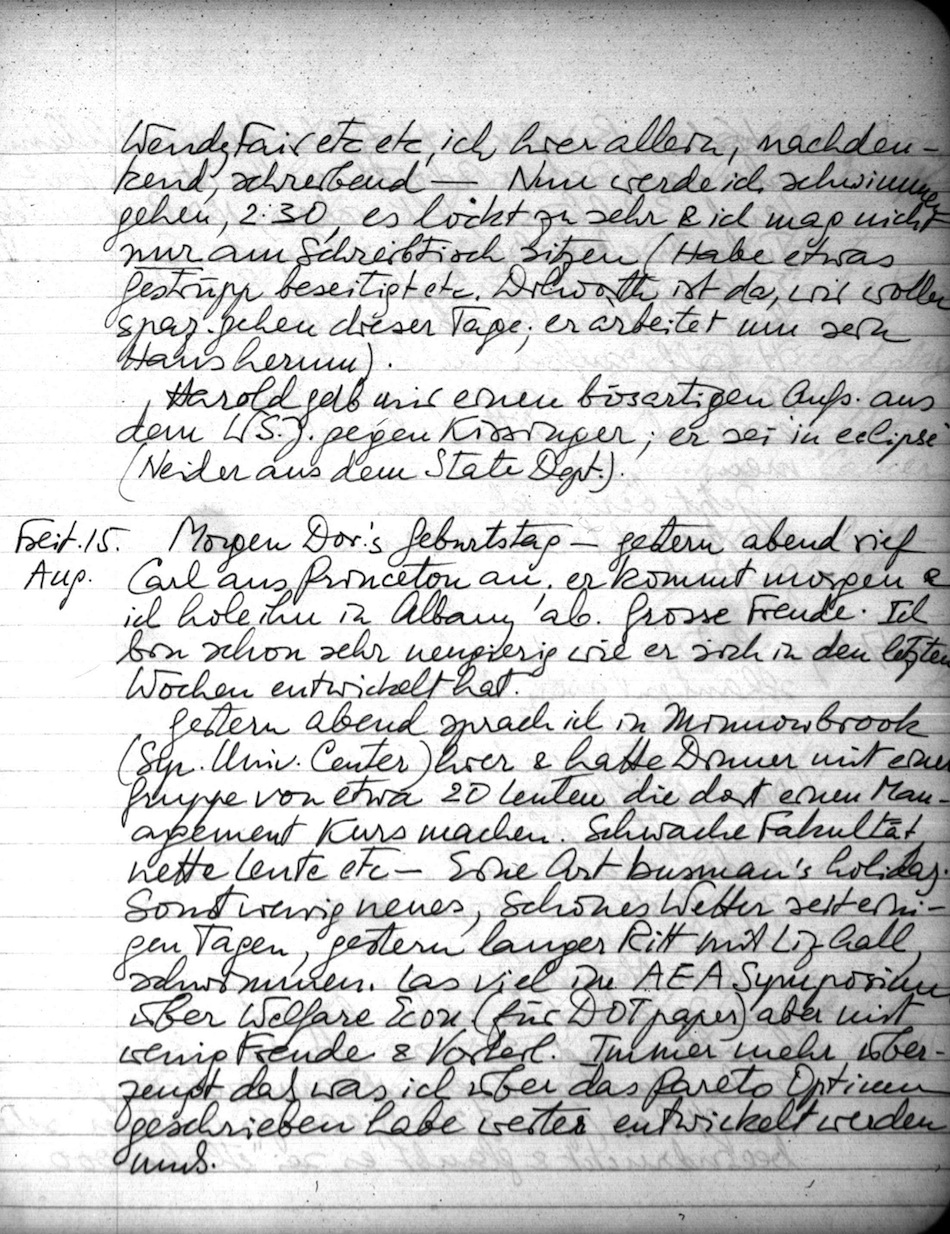 Wendy Fair etc etc, ich hier allein, nachden-
kend, schreibend — Nun werde ich schwimmen
gehen, 2:30, es lockt zu sehr & ich mag nicht
nur am Schreibtisch sitzen (Habe etwas
Gestrüpp beseitigt etc. Dilworth ist da, wir wollen
spaz.gehen dieser Tage; er arbeitet um sein
Haus herum).
Harold gab mir einen bösartigen Aufs. aus
dem WS.J. gegen Kissinger; er sei in eclipse
(Neider aus dem State Dept.).
Freit. 15. Morgen Dor.'s Geburtstag — gestern abend rief
Aug. Carl aus Princeton an, er kommt morgen &
ich hole ihn in Albany ab. Grosse Freude. Ich
bin schon sehr neugierig wie er sich in den letzten
Wochen entwickelt hat.
Gestern abend sprach ich in Minnowbrook
(Syr. Univ. Center) hier & hatte Dinner mit einer
Gruppe von etwa 20 Leuten die dort einen Man-
agement Kurs machen. Schwache Fakultät
nette Leute etc — Eine Art busman's holiday.
Sonst wenig neues, Schönes Wetter seit eini-
gen Tagen, gestern langer Ritt mit Liz Gall,
schwimmen. Las viel im AEA Symposium
über Welfare Econ. (für DOT paper) aber mit
wenig Freude & Vorteil. Immer mehr über-
zeugt daß was ich über das Pareto Optimum
geschrieben habe weiter entwickelt werden
muß.